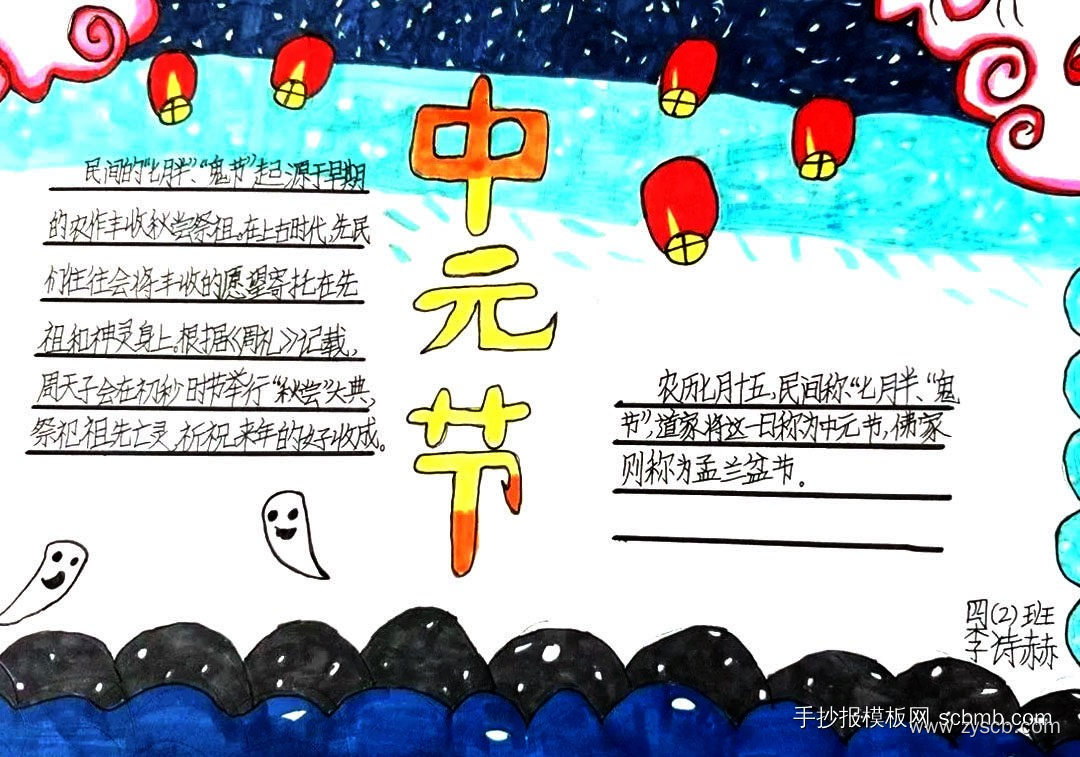 中元节
民间的“七月半”、“鬼节”起源于早期
的农作丰收秋尝祭祖。在上古时代,先民
们往往会将丰收的愿望寄托在先
祖和神灵身上。根据《周礼》记载,
周天子会在初秒时节举行“秋尝”大典,
祭祀祖先亡灵,祈祝来年的好收成。
农历七月十五,民间称“七月半、“鬼
节”,道家将这一日称为中元节,佛家
则称为孟兰盆节。
四(2)班
李诗赫
手抄报模板网 scbmb.com
www.zyscb.com